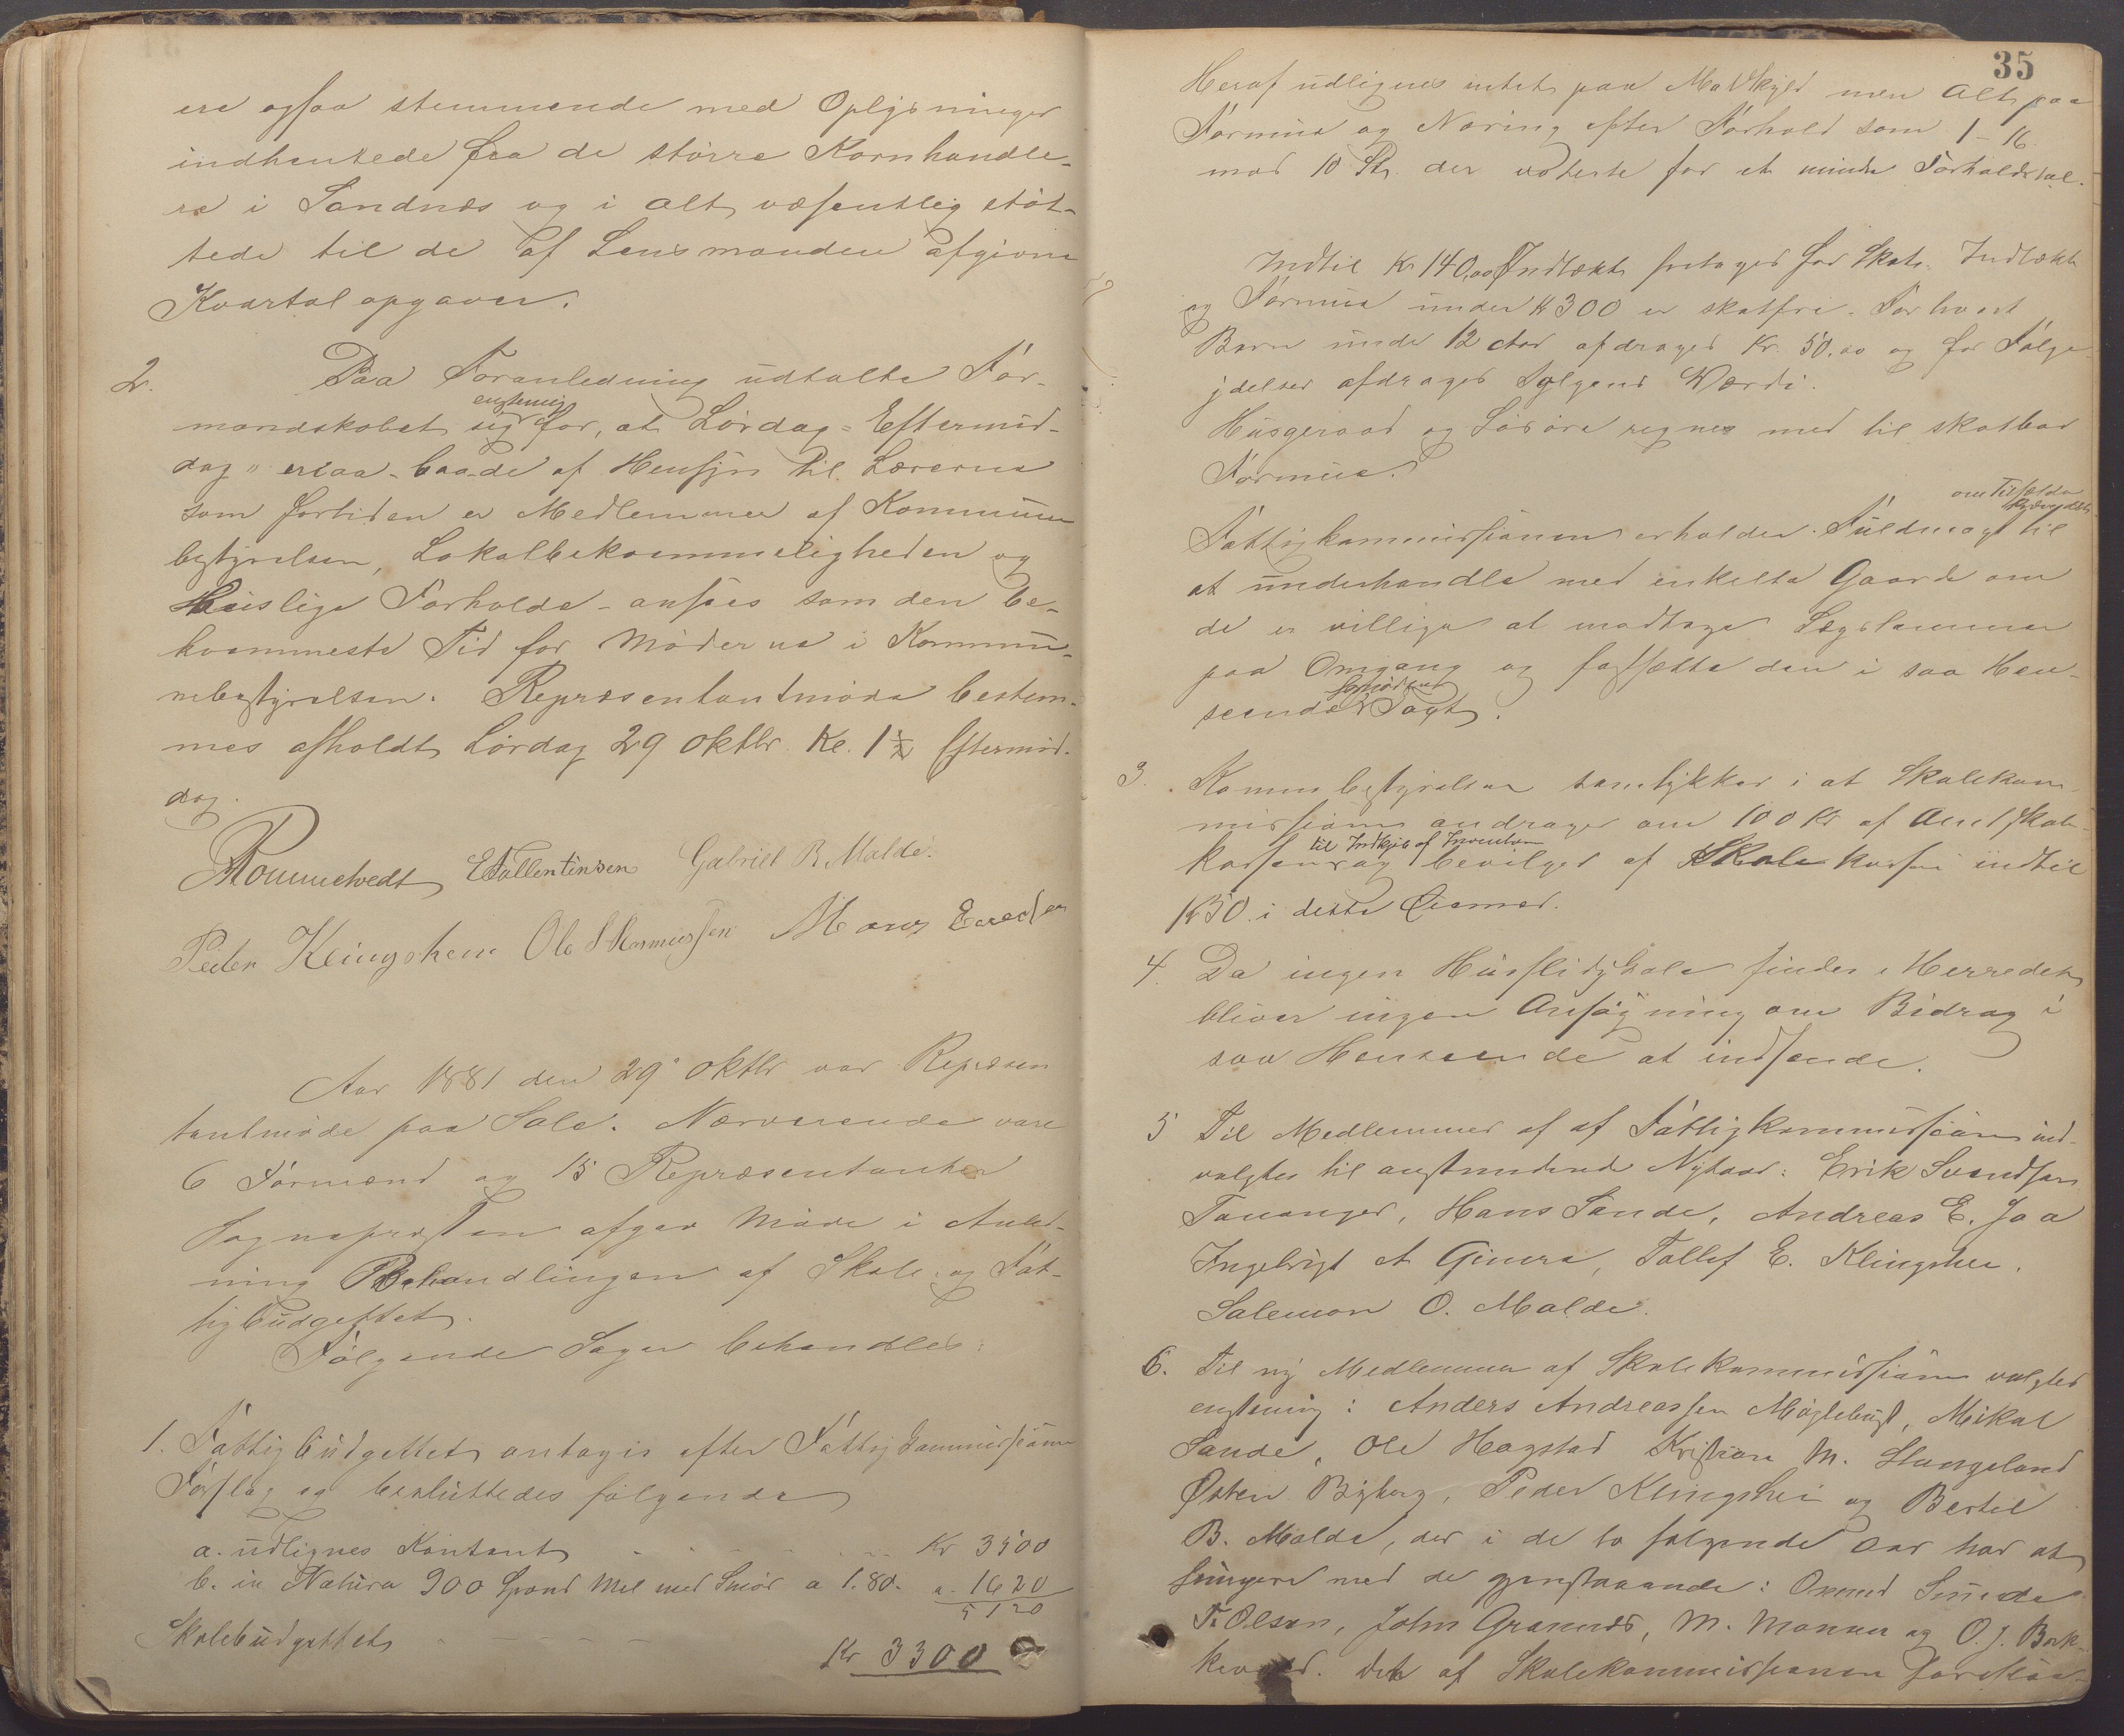 ere ogsaa stemmende med Oplysninger
indhentede fra de större Kornhandle-
re i Sandnæs og i alt væsentlig stöt-
tede til de af Lensmanden afgivne
Kvartalopgaver.
2. Paa Foranledning udtalte For-
mandskabet sig enstemig for, at Lördag-Eftermid-
dag - baade af Hensyn til Lærerne
som fortiden er Medlemmer af Kommune
bestyrelsen, Lokalbekvemmeligheden og
Huslige Forholde - ansees som den be-
kvemmeste Tid for Möderne i Kommu-
nebestyrelsen. Repræsentantmöde bestem-
mes afholdt Lördag 29 Oktbr. Kl. 1½ Eftermid-
dag.
Rommetvedt E Tollentinsen Gabriel B. Malde.
Peder Klingshem Ole S Rasmussen
Aar 1881 den 29 Oktbr var Repræsen
tantmöde paa Sole. Nærværende vare
6 Formænd og 15 Repræsentanter
Sognepresten afgav Möde i Anled-
ning Behandlingen af Skole og Fat-
tigbudgettet.
Fölgende Sager behandles:
1. Fattigbudgettet antages efter Fattigkommissionens
Forslag og besluttedes fölgende
a. udlignes Kontant Kr 3500
b. in Natura 900 Spand Mel med Smör a 1.80. - 1620
5120
Skolebudgettet - - - - -
Kr 3300
35
Heraf udlignes intet paa Matskyld men Alt paa
Formue og Næring efter Forhold som 1 - 16
mod 10 St. der voterte for et mindre Forholdstal.
Indtil Kr 140,00 Indtækt fritages for Skat. Indtækt
og Formue under Kr 300 er skatfri. For hvert
Barn under 12 Aar afdrages Kr. 50.00 og for Fölge-
ydelser afdrages Fölgens Værdi.
Husgeraad og Lösöre regnes med til skatbar
Formue.
Fattigkommissionen erholder Fuldmagt til om Tilfælde kræver det
at underhandle med enkelte Gaarde om
de er villige at modtage Lægslemmer
paa Omgang og fastsætte den i saa Hen-
seende fornödne Taxt.
3. Kommbestyrelsen samtykker i at Skolekom
missionen andrager om 100 Kr af Amtsskole-
kassen til Indkjöb af Inventar og bevilges af Skolekassen indtil
Kr 50. i dette Öiemed.
4. Da ingen Husflidsskole findes i Herredet
bliver ingen Ansögning om Bidrag i
saa Henseende at indsende.
5 Til Medlemmer af af Fattigkommissionen ind-
valgtes til anstundende Nytaar: Erik Svendsen
Tananger, Hans Sande, Andreas E. Joa
Ingebrigt A Gimra, Tollef E. Klingshei.
Salemon O. Malde.
6. Til ny Medlemmer af Skolekommissionen valgtes
enstemig: Anders Andreassen Myklebust, Mikal
Sande, Ole Hagstad Kristian M. Stangeland
Östen Byberg, Peder Klingshei og Bertel
B. Malde, der i de to fölgende Aar har at
fungere med de gjenstaaende: Ommund Smede
T. Olsen, John Grannes, M. Monsen og O. J. Bark-
kevold. Det af Skolekommissionen foreslaa-